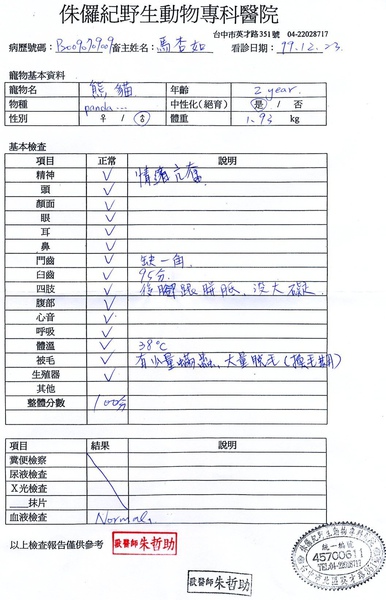 侏儸紀野生動物專科醫院
台中市英才路351號 04-22028717
病歷號碼：B009090909 畜主姓名：馬杏如 看診日期：99.12.23
寵物基本資料
寵物名 熊貓 年齡 2 year.
物種 panda... 中性化(絕育) 是 / 否
性別 ♀ / ♂ 體重 1.93 kg
基本檢查
項目 正常 說明
精神 ✓ 情緒亢奮
頭 ✓
顏面 ✓
眼 ✓
耳 ✓
鼻 ✓
門齒 ✓ 缺一角
臼齒 ✓ 95分
四肢 ✓ 後腳跟胼胝，沒大礙
腹部 ✓
心音 ✓
呼吸 ✓
體溫 ✓ 38°C
被毛 ✓ 有少量蟎蟲，大量脫毛(換毛期)
生殖器 ✓
其他
整體分數 100分
項目 結果 說明
糞便檢察
尿液檢查
X光檢查
___抹片
血液檢查 Normal
以上檢查報告僅供參考 獸醫師朱哲助
獸醫師朱哲助
統一編號
45700611
TEL:04-22028717